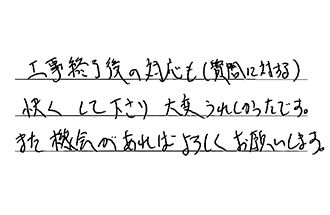 工事終了後の対応も(質問に対する)
快くして下さり大変うれしかったです。
また機会があればよろしくお願いします。